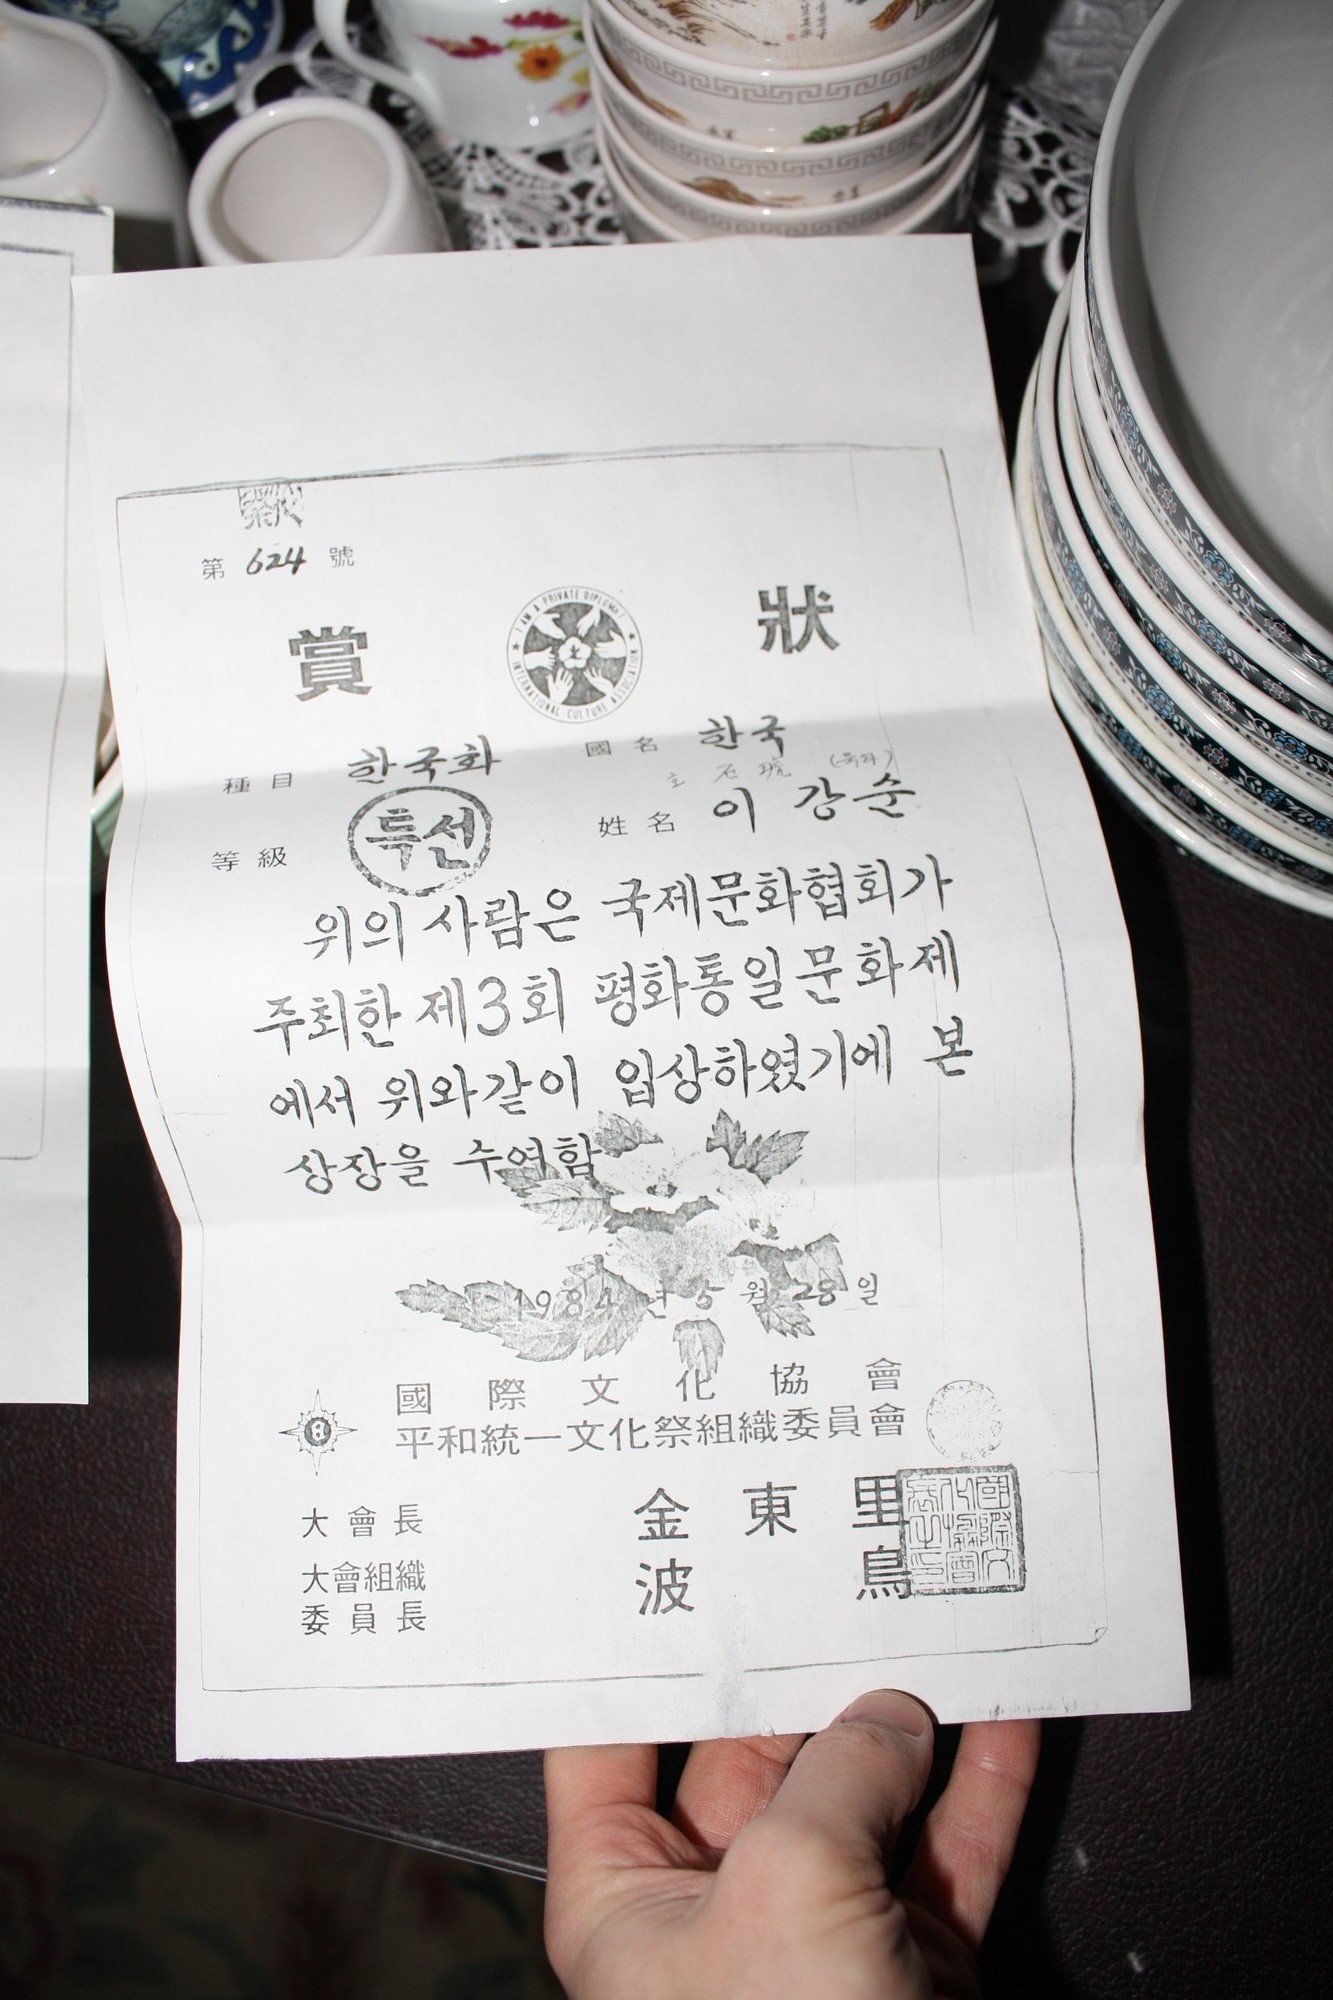 第 624 號
賞 狀
I AM A PRIVATE DIPLOMAT
INTERNATIONAL CULTURE ASSOCIATION
種目 한국화 國名 한국
等級 특선 姓名 이 강순
위의 사람은 국제문화협회가
주최한 제3회 평화통일문화제
에서 위와같이 입상하였기에 본
상장을 수여함
1984년 5월 28일
國際文化協會
平和統一文化祭組織委員會
大會長 金東里
大會組織
委員長 波鳥